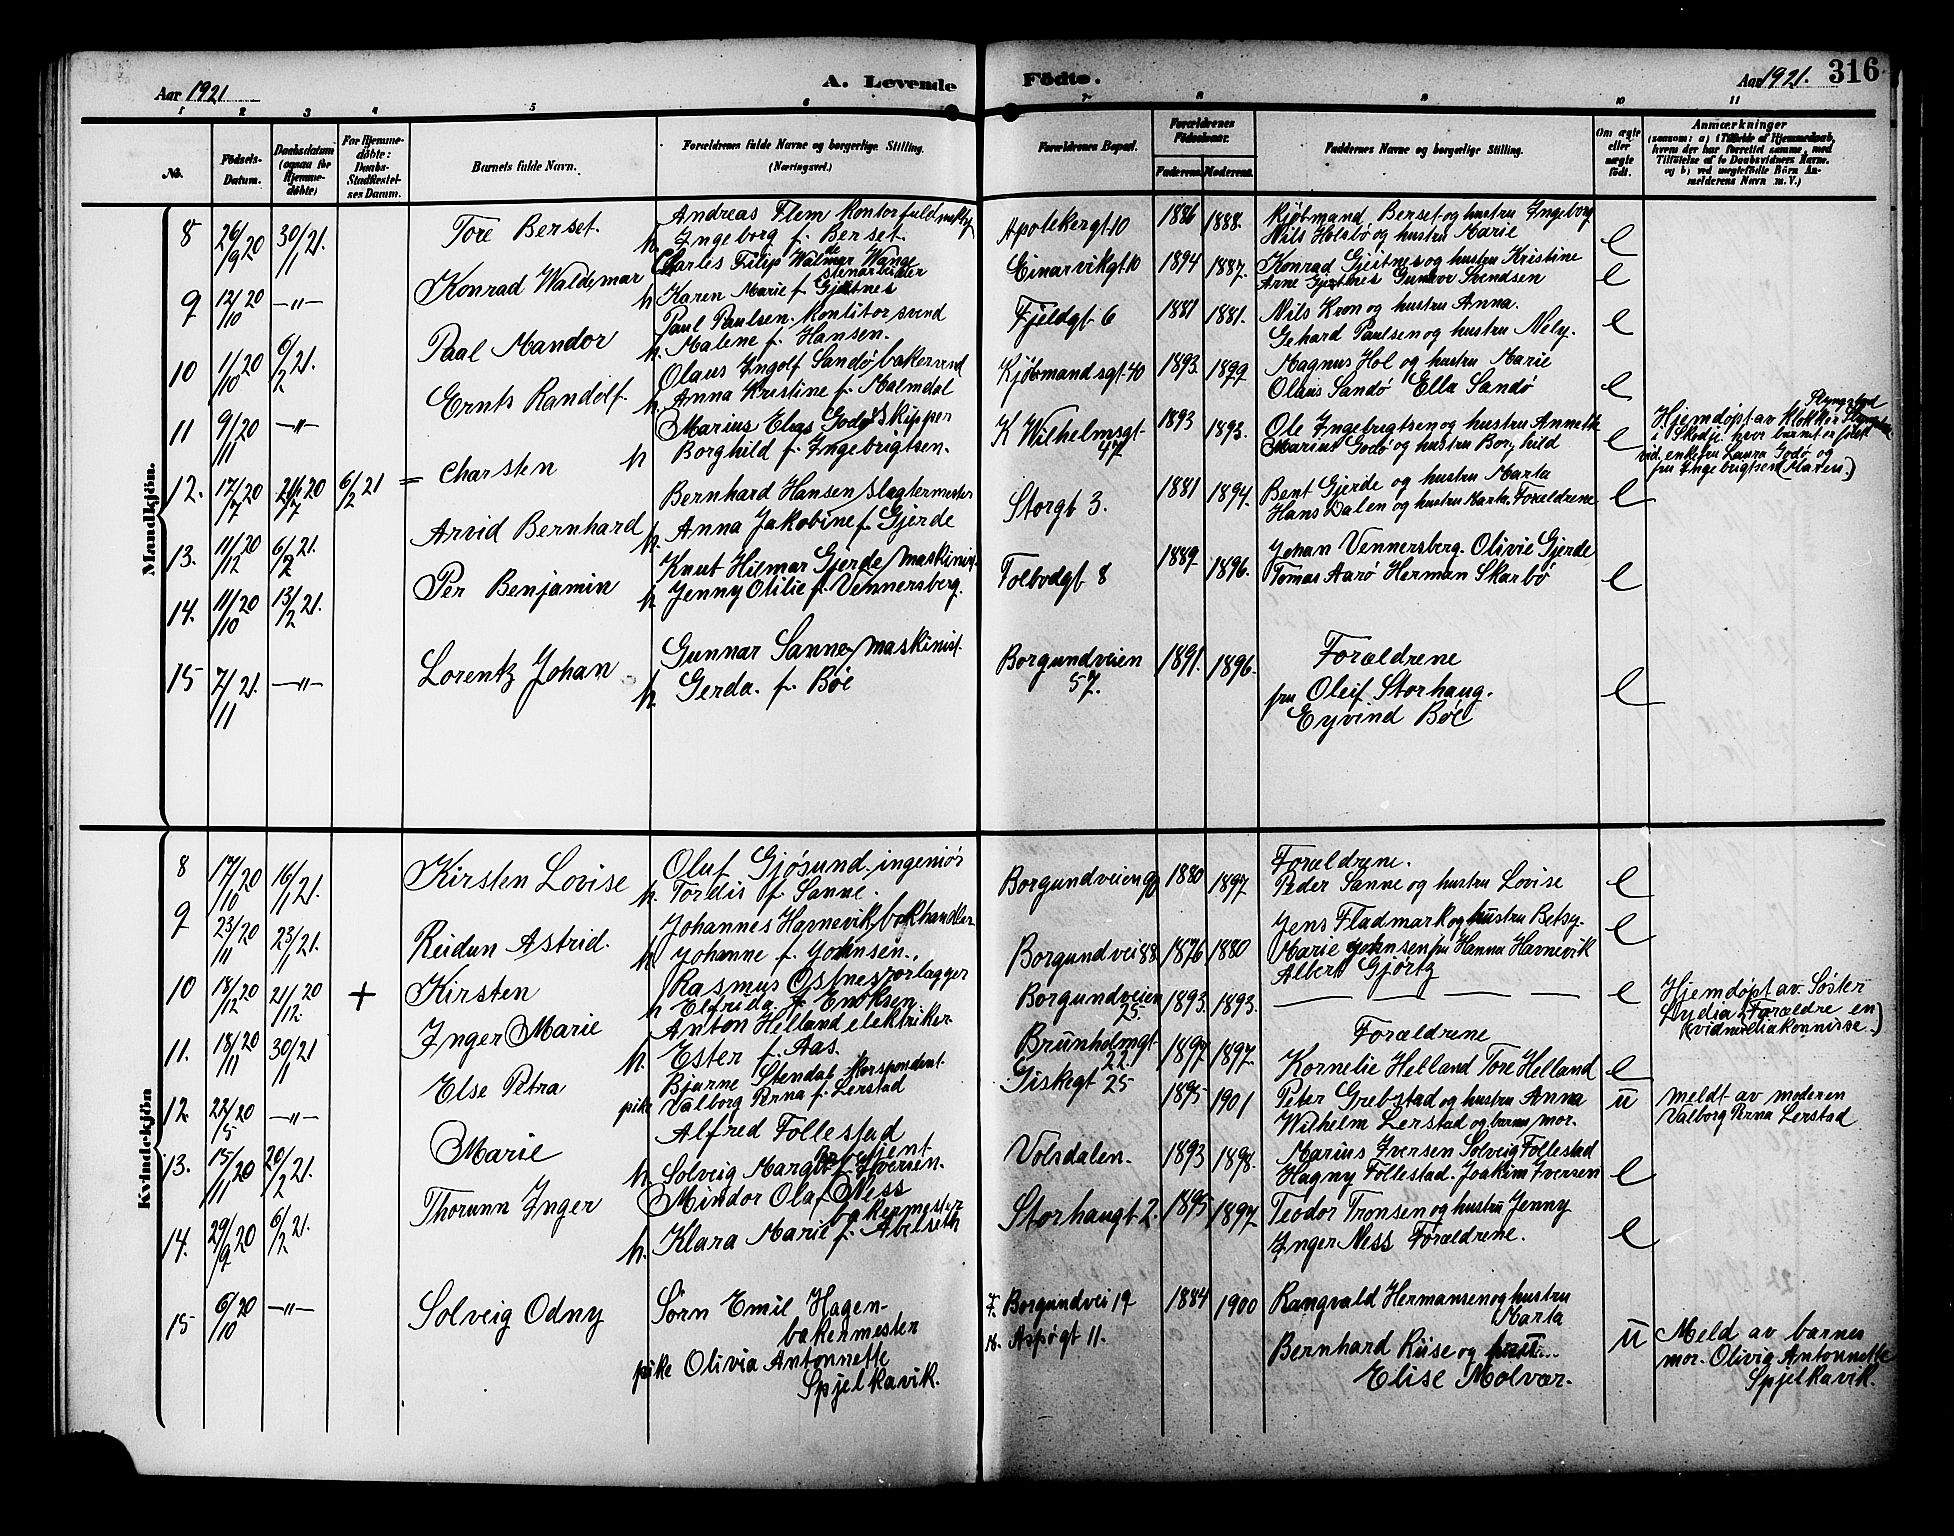 Aar 1921
A. Levende Fødte.
Aar 1921. 316
1 2 3 4 5 6 7 8 9 10 11
No.
Fødsels-Datum.
Daabsdatum (ogsaa for Hjemmedøbte)
For Hjemmedøbte: Daabs-Stadfæstelses Datum.
Barnets fulde Navn.
Forældrenes fulde Navne og borgerlige Stilling. (Næringsvei.)
Forældrenes Bopæl.
Forældrenes Fødselsaar.
Faderens. Moderens.
Faddernes Navne og borgerlige Stilling.
Om ægte eller uægte født.
Anmærkninger
Mandkjön.
8 26/9 20 30/1 21. Tore Berset. Andreas Flem kontorfuldmektig Apotekergt 10 1886 1888. Kjøbmand Berset og hustru Ingeborg e
h. Ingeborg f. Berset. Nils Holsbø og hustru Marie
9 12/10 20 —"— Konrad Waldemar Charles Filip Walmar Wange stenarbeider Einarvikgt 10 1894 1887. Konrad Gjertnes og hustru Kristine e
h Karen Marie f Gjertnes Arne Gjertnes Gunvor Svendsen
10 11/10 20 6/2 21. Paal Mandor Paul Paulsen. konditorsvend Fjeldgt 6 1881 1881. Nils Kron og hustru Anna. e
h. Malene f. Hansen. Gehard Paulsen og hustru Nely.
11 9/11 20 —"— Ernts Randolf. Olaus Ingolf Sandø bakersvend Kjøbmandsgt. 40 1893. 1899 Magnus Hol og hustru Marie e
h. Anna Kristine f. Malmdal Olaus Sandø Ella Sandø
12. 17/7 20 6/2 21 = Charsten Marius Elias Godø Skipper K Wilhelmsgt 47 1893 1893. Ole Ingebrigtsen og hustru Annette e Hjemdøpt av klokker
h Borghild f. Ingebrigtsen. Marius Godø og hustru Borghild i Skodje. hvor barnet er født
vid. enkefru Laura Godø og
fru Ingebrigtsen (Maren.)
13. 11/12 20 6/2 21. Arvid Bernhard Bernhard Hansen slagtermester Storgt 3. 1881 1894. Bent Gjerde og hustru Marta e
h. Anna Jakobine f. Gjerde Hans Dalen og hustru Marta. Forældrene
14. 11/10 20 13/2 21. Per Benjamin Knut Hilmar Gjerde maskinist Tolbodgt 8 1889 1896. Johan Vennersberg. Olivie Gjerde e
h. Jenny Otilie f. Vennersberg. Tomas Aarø Herman Skarbø
15 7/11 21. —"— Lorentz Johan Gunnar Sanne maskinist. Borgundveien 57. 1891. 1896. Forældrene e
h. Gerda. f. Bøe fru Oleif Storhaug.
Eyvind Bøe
Kvindekjön
8 17/10 20 16/1 21. Kirsten Lovise Oluf Gjøsund. ingeniør Borgundveien 90 1880 1897 Forældrene. e
h. Tordis f Sanne. Peder Sanne og hustru Lovise
9 23/11 20 23/1 21. Reidun Astrid. Johannes Havnevik bokhandler Borgundvei 88 1876 1880 Jens Fladmark og hustru Betsy. e
h. Johanne f. Johnsen. Marie Johnsen fru Hanna Havnevik
Albert Gjørtz
10 18/12 20 21/12 20 + Kirsten Rasmus Ostnes forlægger Borgundveien 25. 1893. 1893. — — — e Hjemdøpt av Søster
h Eldrida f. Enoksen. Lydia Forældre en
(vidne diakonisse.)
11. 18/11 20 30/1 21 Inger Marie Anton Helland elektriker Brunholmgt 22. 1897 1897. Forældrene e
h. Ester f. Aas. Kornelie Helland Tore Helland
12. 22/5 20 —"— Else Petra Bjarne Stendal korspondent Giskegt 25 1895 1901 Peter Grebstad og hustru Anna u meldt av moderen
pike Valborg Perna f. Lerstad Wilhelm Lerstad og barnets mor. Valborg Perna Lerstad
13. 15/11 20 20/2 21. Marie Alfred Follestad Volsdalen. 1893 1898. Marius Iversen Solveig Follestad e
h. Solveig Margit f. Iversen. Hagny Follestad. Joakim Iversen
14. 29/9 20 6/2 21. Thorunn Inger Mindor Olaf Ness bakermester Storhaugt 2. 1895 1897. Teodor Tronsen og hustru Jenny e
h. Klara Marie f. Abelseth Inger Ness Forældrene.
15 6/10 20 —"— Solveig Odny Sørn Emil Hagen- F. Borgundvei 19 1884 1900 Rangvald Hermansen og hustru
bakermester M. Aspøgt 11. Marta
pike Olivia Antonnette Bernhard Riise og u Meld av barnes
Spjelkavik. Elise Molvær. mor. Olivia Antonnette
Spjelkavik.